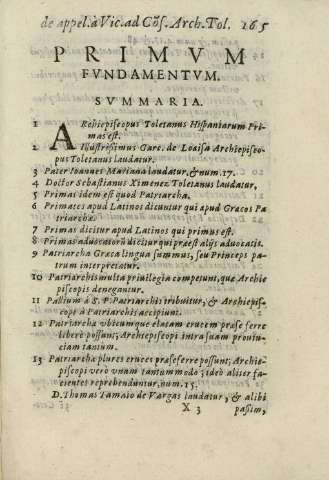 de appel. à Vic. ad Cōs. Arch. Tol. 165
PRIMVM
FVNDAMENTVM.
SVMMARIA.
1 ARchiepiscopus Toletanus Hispaniarum Primas est.
2 Illustrissimus Garc. de Loaisa Archiepiscopus Toletanus laudatur.
3 Pater Ioannes Mariana laudatur, & num. 17.
4 Doctor Sebastianus Ximenez Toletanus laudatur.
5 Primas idem est quod Patriarcha.
6 Primates apud Latinos dicuntur qui apud Græcos Patriarchæ.
7 Primas dicitur apud Latinos qui primus est.
8 Primas aduocatorũ dicitur qui præest alijs aduocatis.
9 Patriarcha Græca lingua summus, seu Princeps patrum interpretatur.
10 Patriarchis multa priuilegia competunt, quæ Archiepiscopis denegantur.
11 Pallium à S. P. Patriarchis tribuitur, & Archiepiscopis à Patriarchis accipiunt.
12 Patriarchæ vbicumque etiam crucem præ se ferre liberè possunt; Archiepiscopi intra suam prouinciam tantum.
13 Patriarchæ plures cruces præ se ferre possunt; Archiepiscopi verò vnam tantummodo; ideò aliter facientes reprehenduntur, num. 15.
D. Thomas Tamaio de Vargas laudatur, & alibi
X 3 passim,